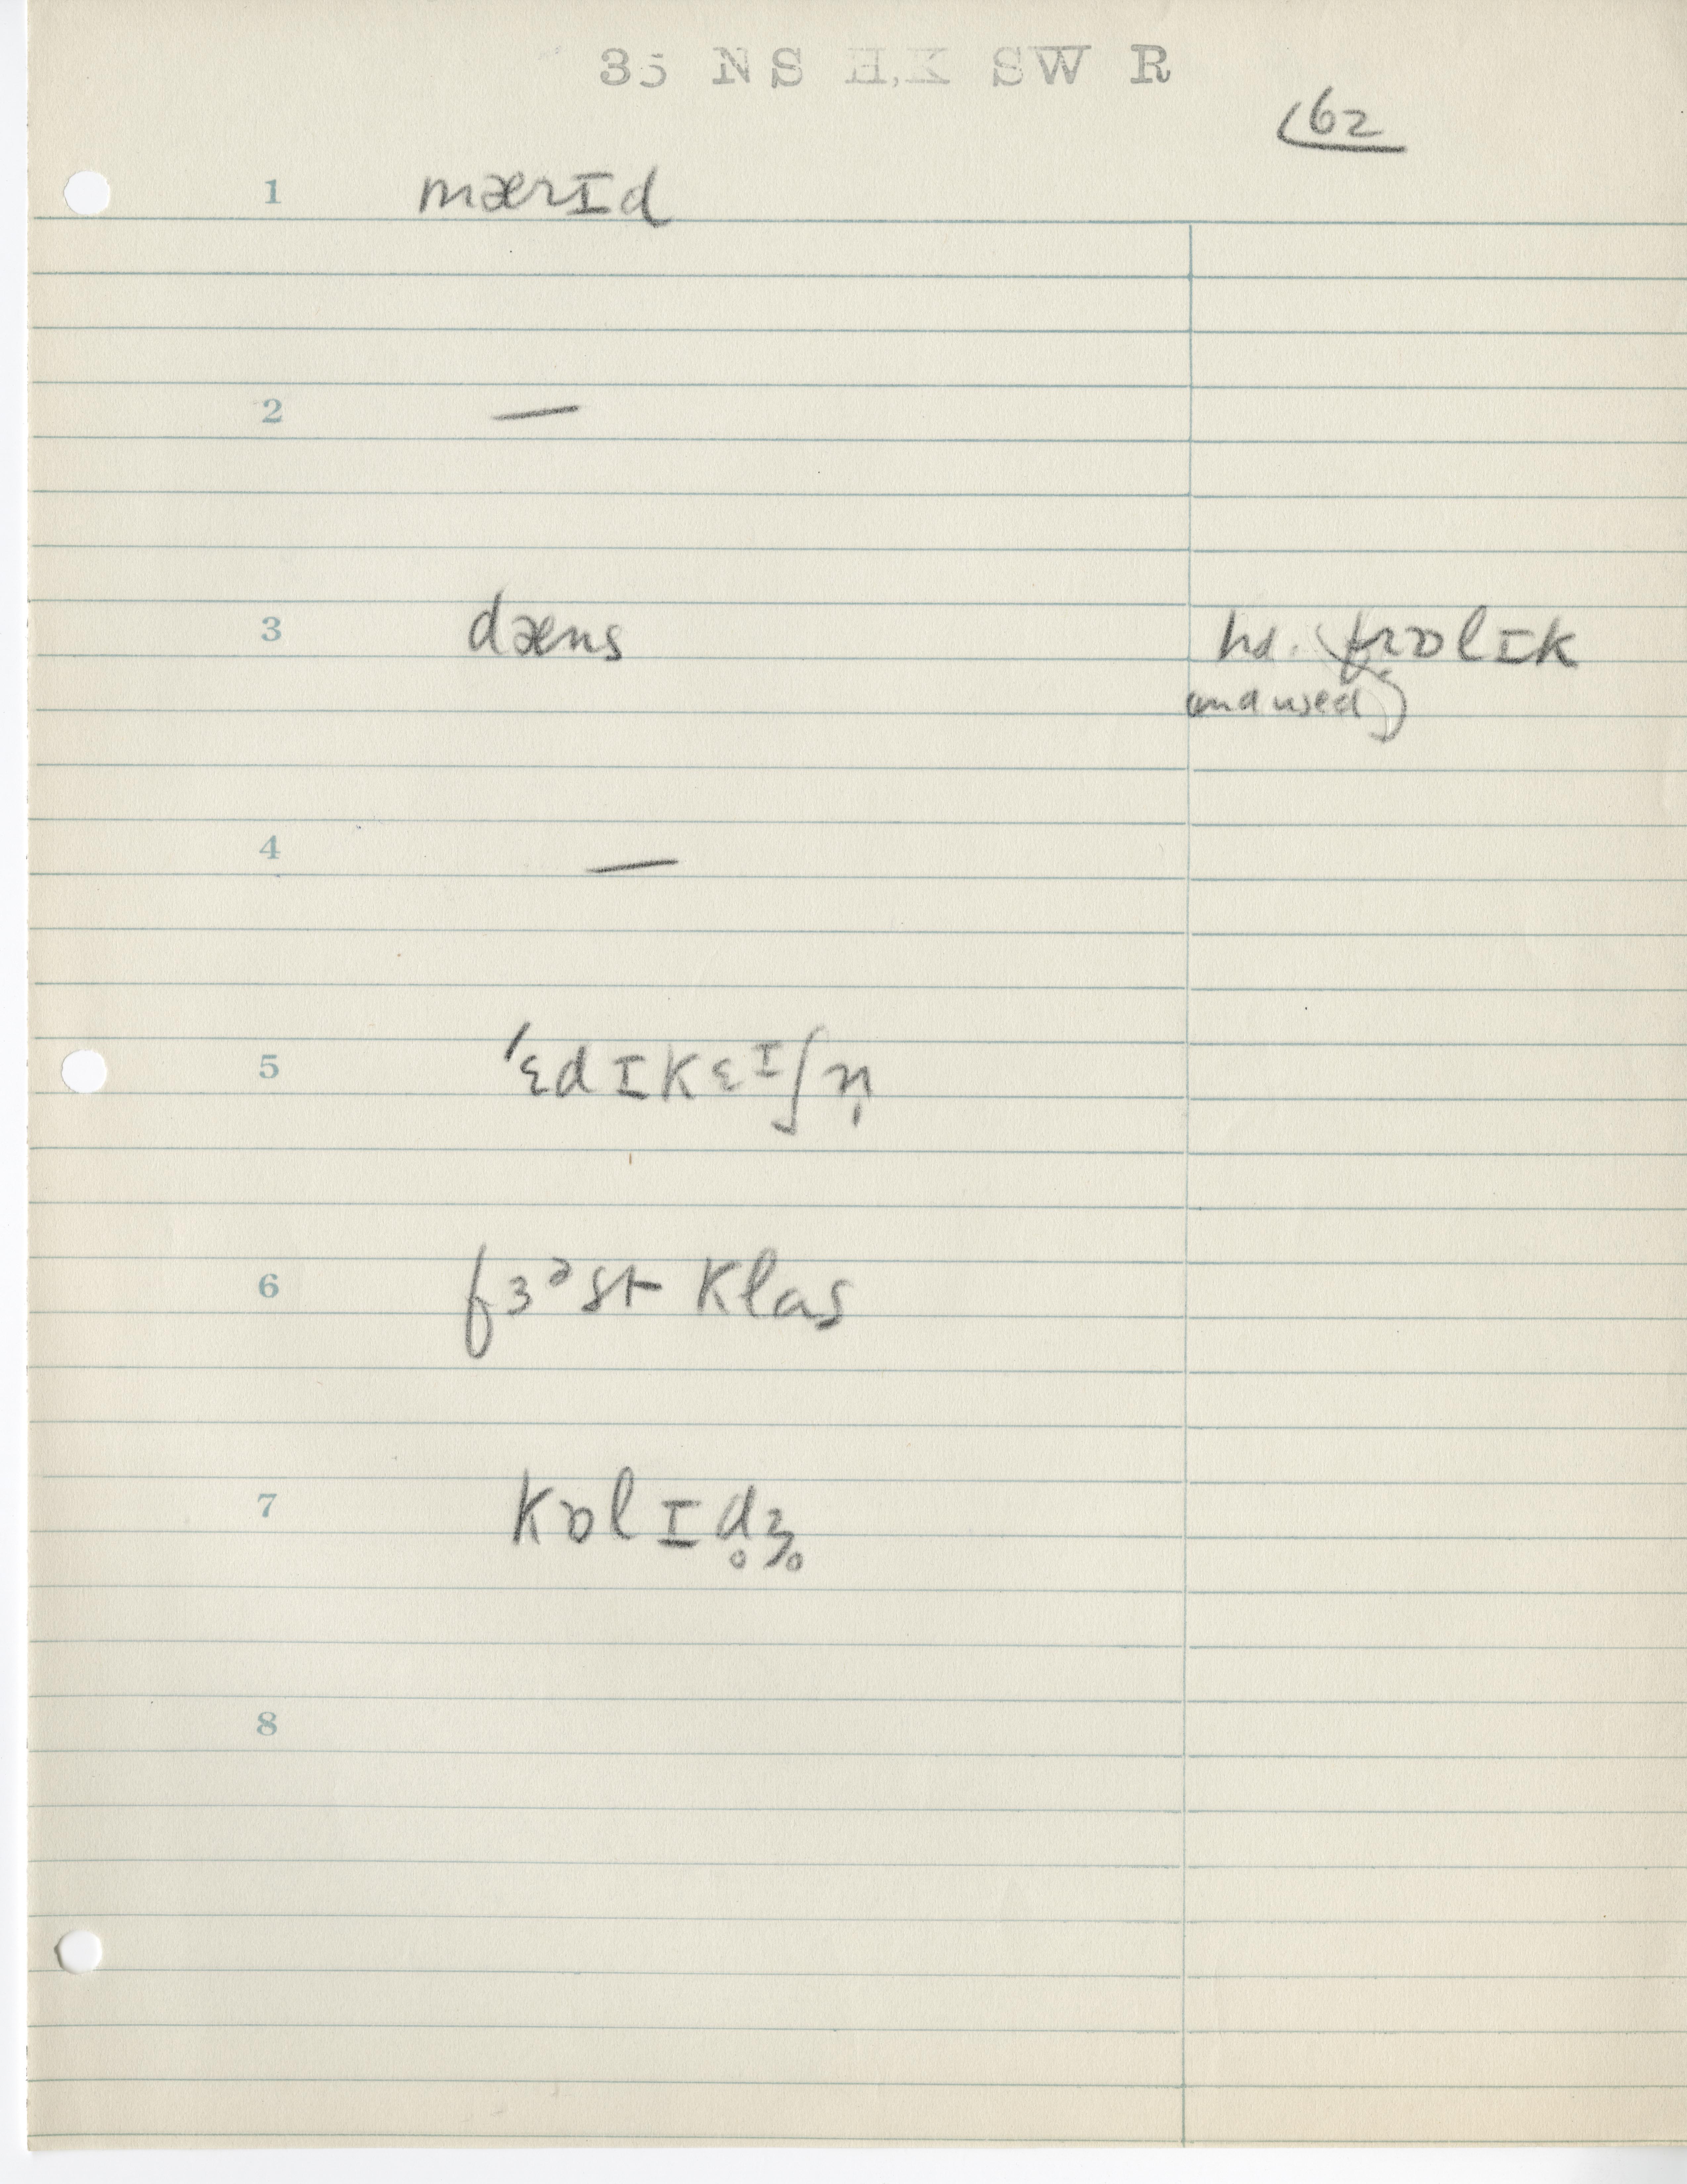 35 NS H.K SW R
62
1 mærɪd
2 —
3 dæns hd. frɒlɪk
(and used)
4 —
5 ˈɛdɪkɛᴵʃn̩
6 fɜᵊst klas
7 kɒlɪd̥ʒ̥
8